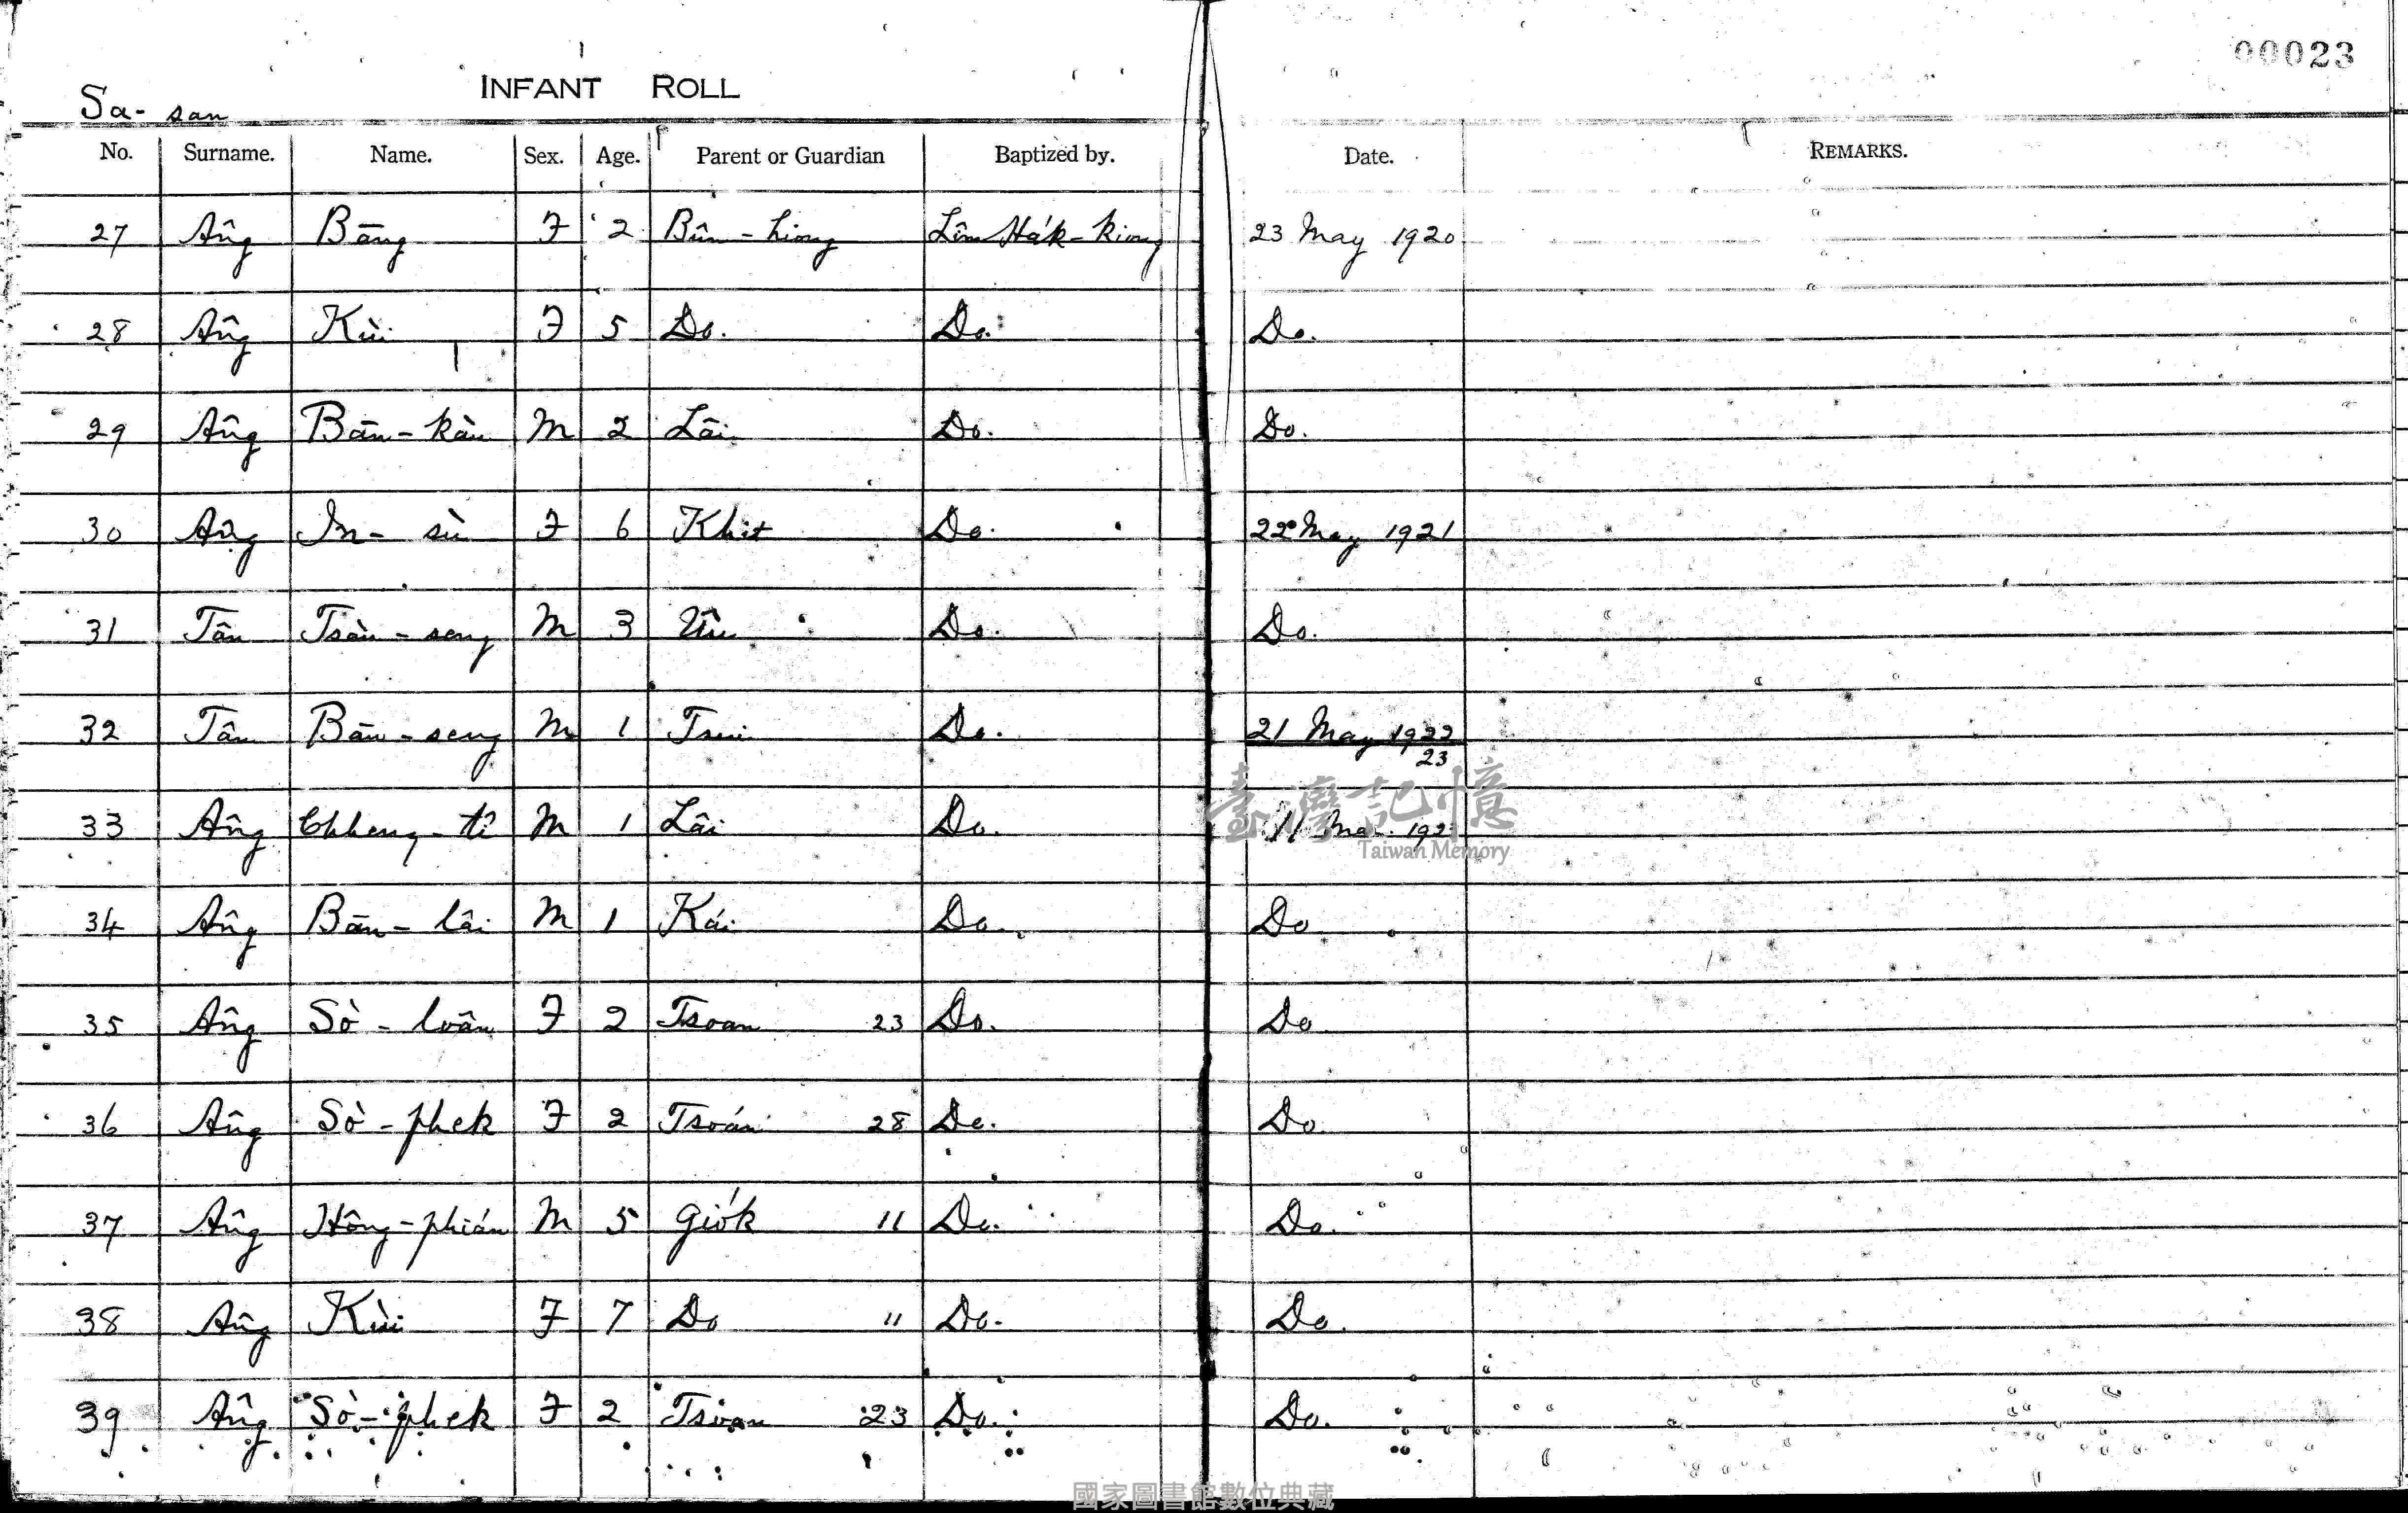 00023
INFANT ROLL
Sa-san
No. Surname. Name. Sex. Age. Parent or Guardian Baptized by. Date. REMARKS.
27 Âng Bāng F 2 Bûn-hiong Lîm Ha̍k-kiong 23 May 1920
28 Âng Kùi F 5 Do. Do. Do.
29 Âng Bān-kàu M 2 Lâi Do. Do.
30 Âng In-sù F 6 Khit Do. 22 May 1921
31 Tân Tsàu-seng M 3 Ûn Do. Do.
32 Tân Bān-seng M 1 Tsui Do. 21 May 1922
23
33 Âng Chheng-tî M 1 Lâi Do. 11 192
臺灣記憶
Taiwan Memory
34 Âng Bān-lâi M 1 Kái Do. Do
35 Âng Sò-loân F 2 Tsoan 23 Do. Do
36 Âng Sò-phek F 2 Tsoán 28 Do. Do
37 Âng Hông-phián M 5 Gio̍k 11 Do. Do.
38 Âng Kùi F 7 Do 11 Do. Do.
39 Âng Sò-phek F 2 Tsoan 23 Do. Do.
國家圖書館數位典藏